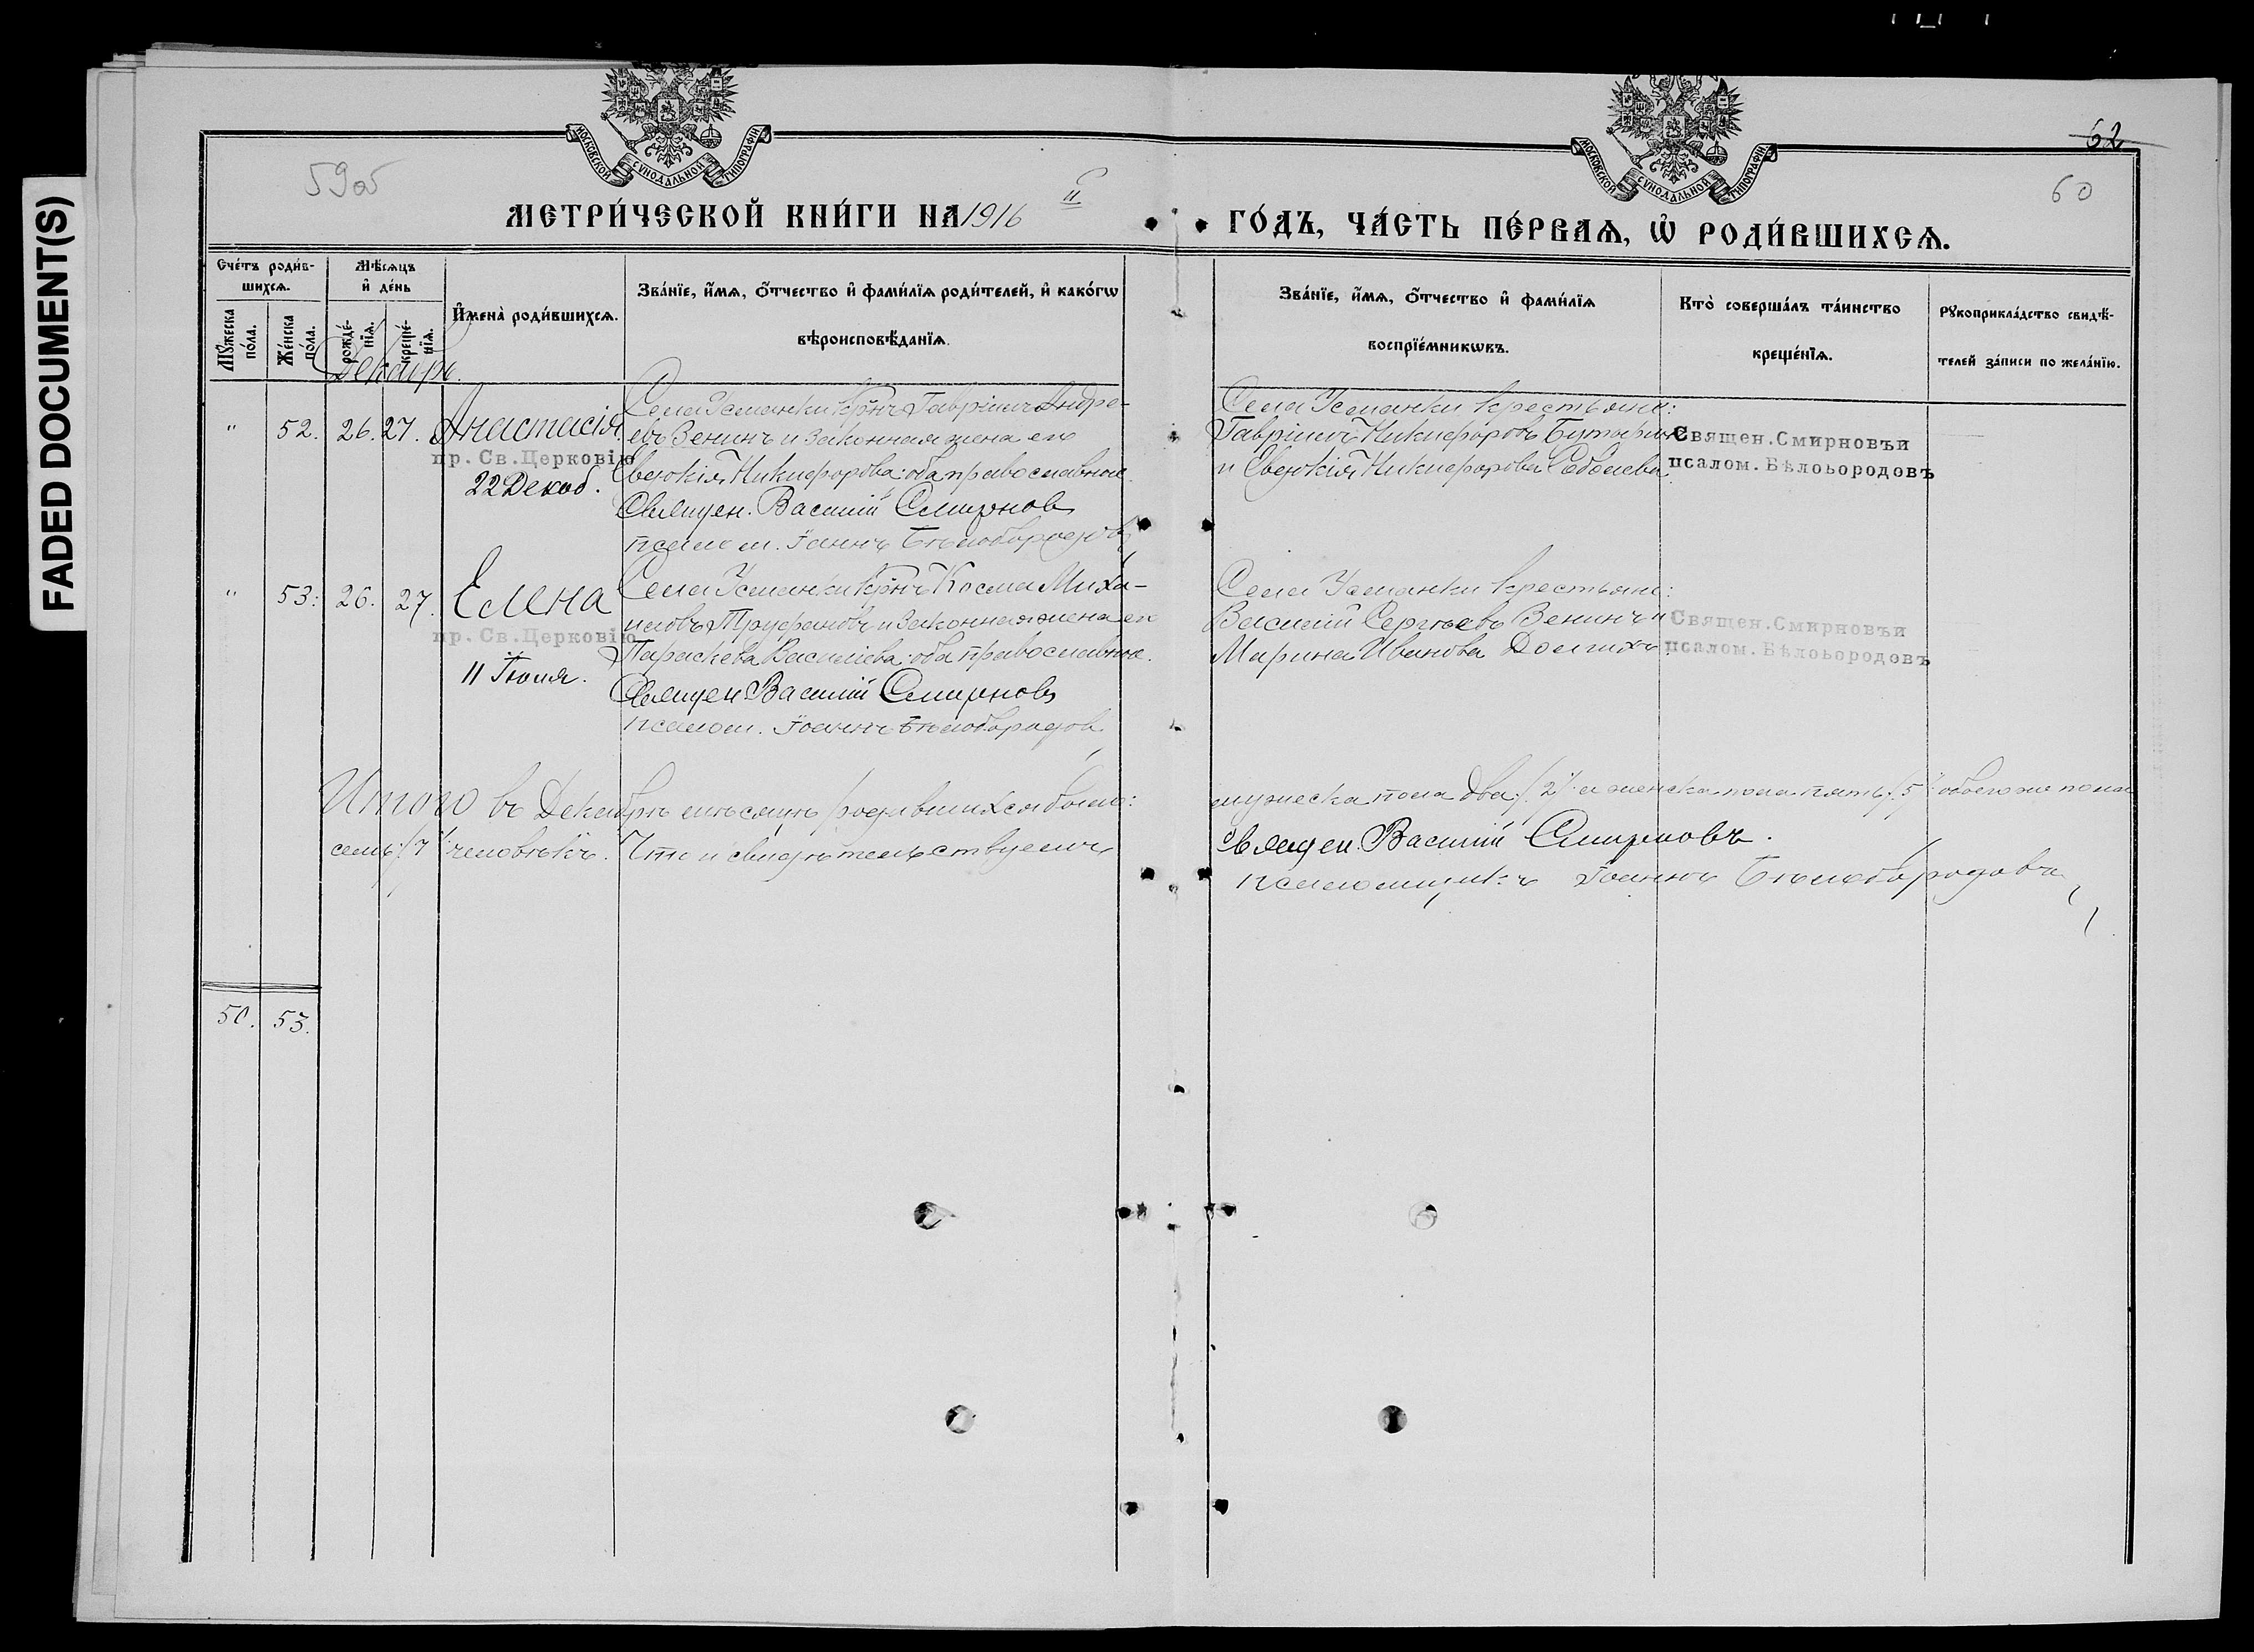 FADED DOCUMENT(S)
МОСКОВСКОЙ СѴНОДАЛЬНОЙ ТИПОГРАФІИ
МОСКОВСКОЙ СѴНОДАЛЬНОЙ ТИПОГРАФІИ
59об
62
60
МЕТРИ́ЧЕСКОЙ КНИ́ГИ НА 1916
ГО́ДЪ, ЧА́СТЬ ПЕ́РВАѦ, Ѡ҆ РОДИ́ВШИХСѦ.
Сче́тъ роди́в-
шихсѧ.
Мѣ́сѧцъ
и҆ де́нь
И҆мена̀ роди́вшихсѧ.
Зва́нїе, и҆́мѧ, ѻ҆́тчество и҆ фами́лїѧ роди́телей, и҆ како́гѡ
вѣроисповѣ́данїѧ.
Зва́нїе, и҆́мѧ, ѻ҆́тчество и҆ фами́лїѧ
воспрїе́мникѡвъ.
Кто̀ соверша́лъ та́инство
креще́нїѧ.
Рꙋкоприкла́дство свидѣ́-
телей за́писи по жела́нїю.
Мꙋ́жеска
по́ла.
Же́нска
по́ла.
рожде́-
нїѧ.
креще́-
нїѧ.
Декабрь.
" 52. 26. 27. Анастасія
пр. Св.Церковію
22 Декаб.
Села Усманки крнъ Гавріилъ Андре-
евъ Зенинъ и законная жена его
Евдокія Никифорова: оба православные
Священ. Василій Смирновъ
псалом. Іоаннъ Бѣлобородовъ
Села Усманки крестьяне:
Гавріилъ Никифоровъ Бутырин
и Евдокія Никифорова Соболева.
Священ.Смирновъи
псалом.Бѣлоьородовъ
" 53. 26. 27. Елена
пр. Св.Церковію
11 Іюля.
Села Усманки крнъ Косма Миха-
иловъ Труфановъ и законная жена его
Параскева Василіева: оба православные.
Священ Василій Смирновъ
псалом. Іоаннъ Бѣлобородовъ
Села Усманки крестьяне:
Василій Сергѣевъ Зенинъ и
Марина Иванова Долгихъ
Священ.Смирновъи
псалом.Бѣлоьородовъ
Итого въ Декабрѣ мѣсяцѣ родившихся было: мужеска пола два /2/ и женска пола пять /5/ обоего же пола
семь /7/ человѣкъ. Что и свидѣтельствуемъ
Священ. Василій Смирновъ.
псаломщикъ Іоаннъ Бѣлобородовъ
50. 53.